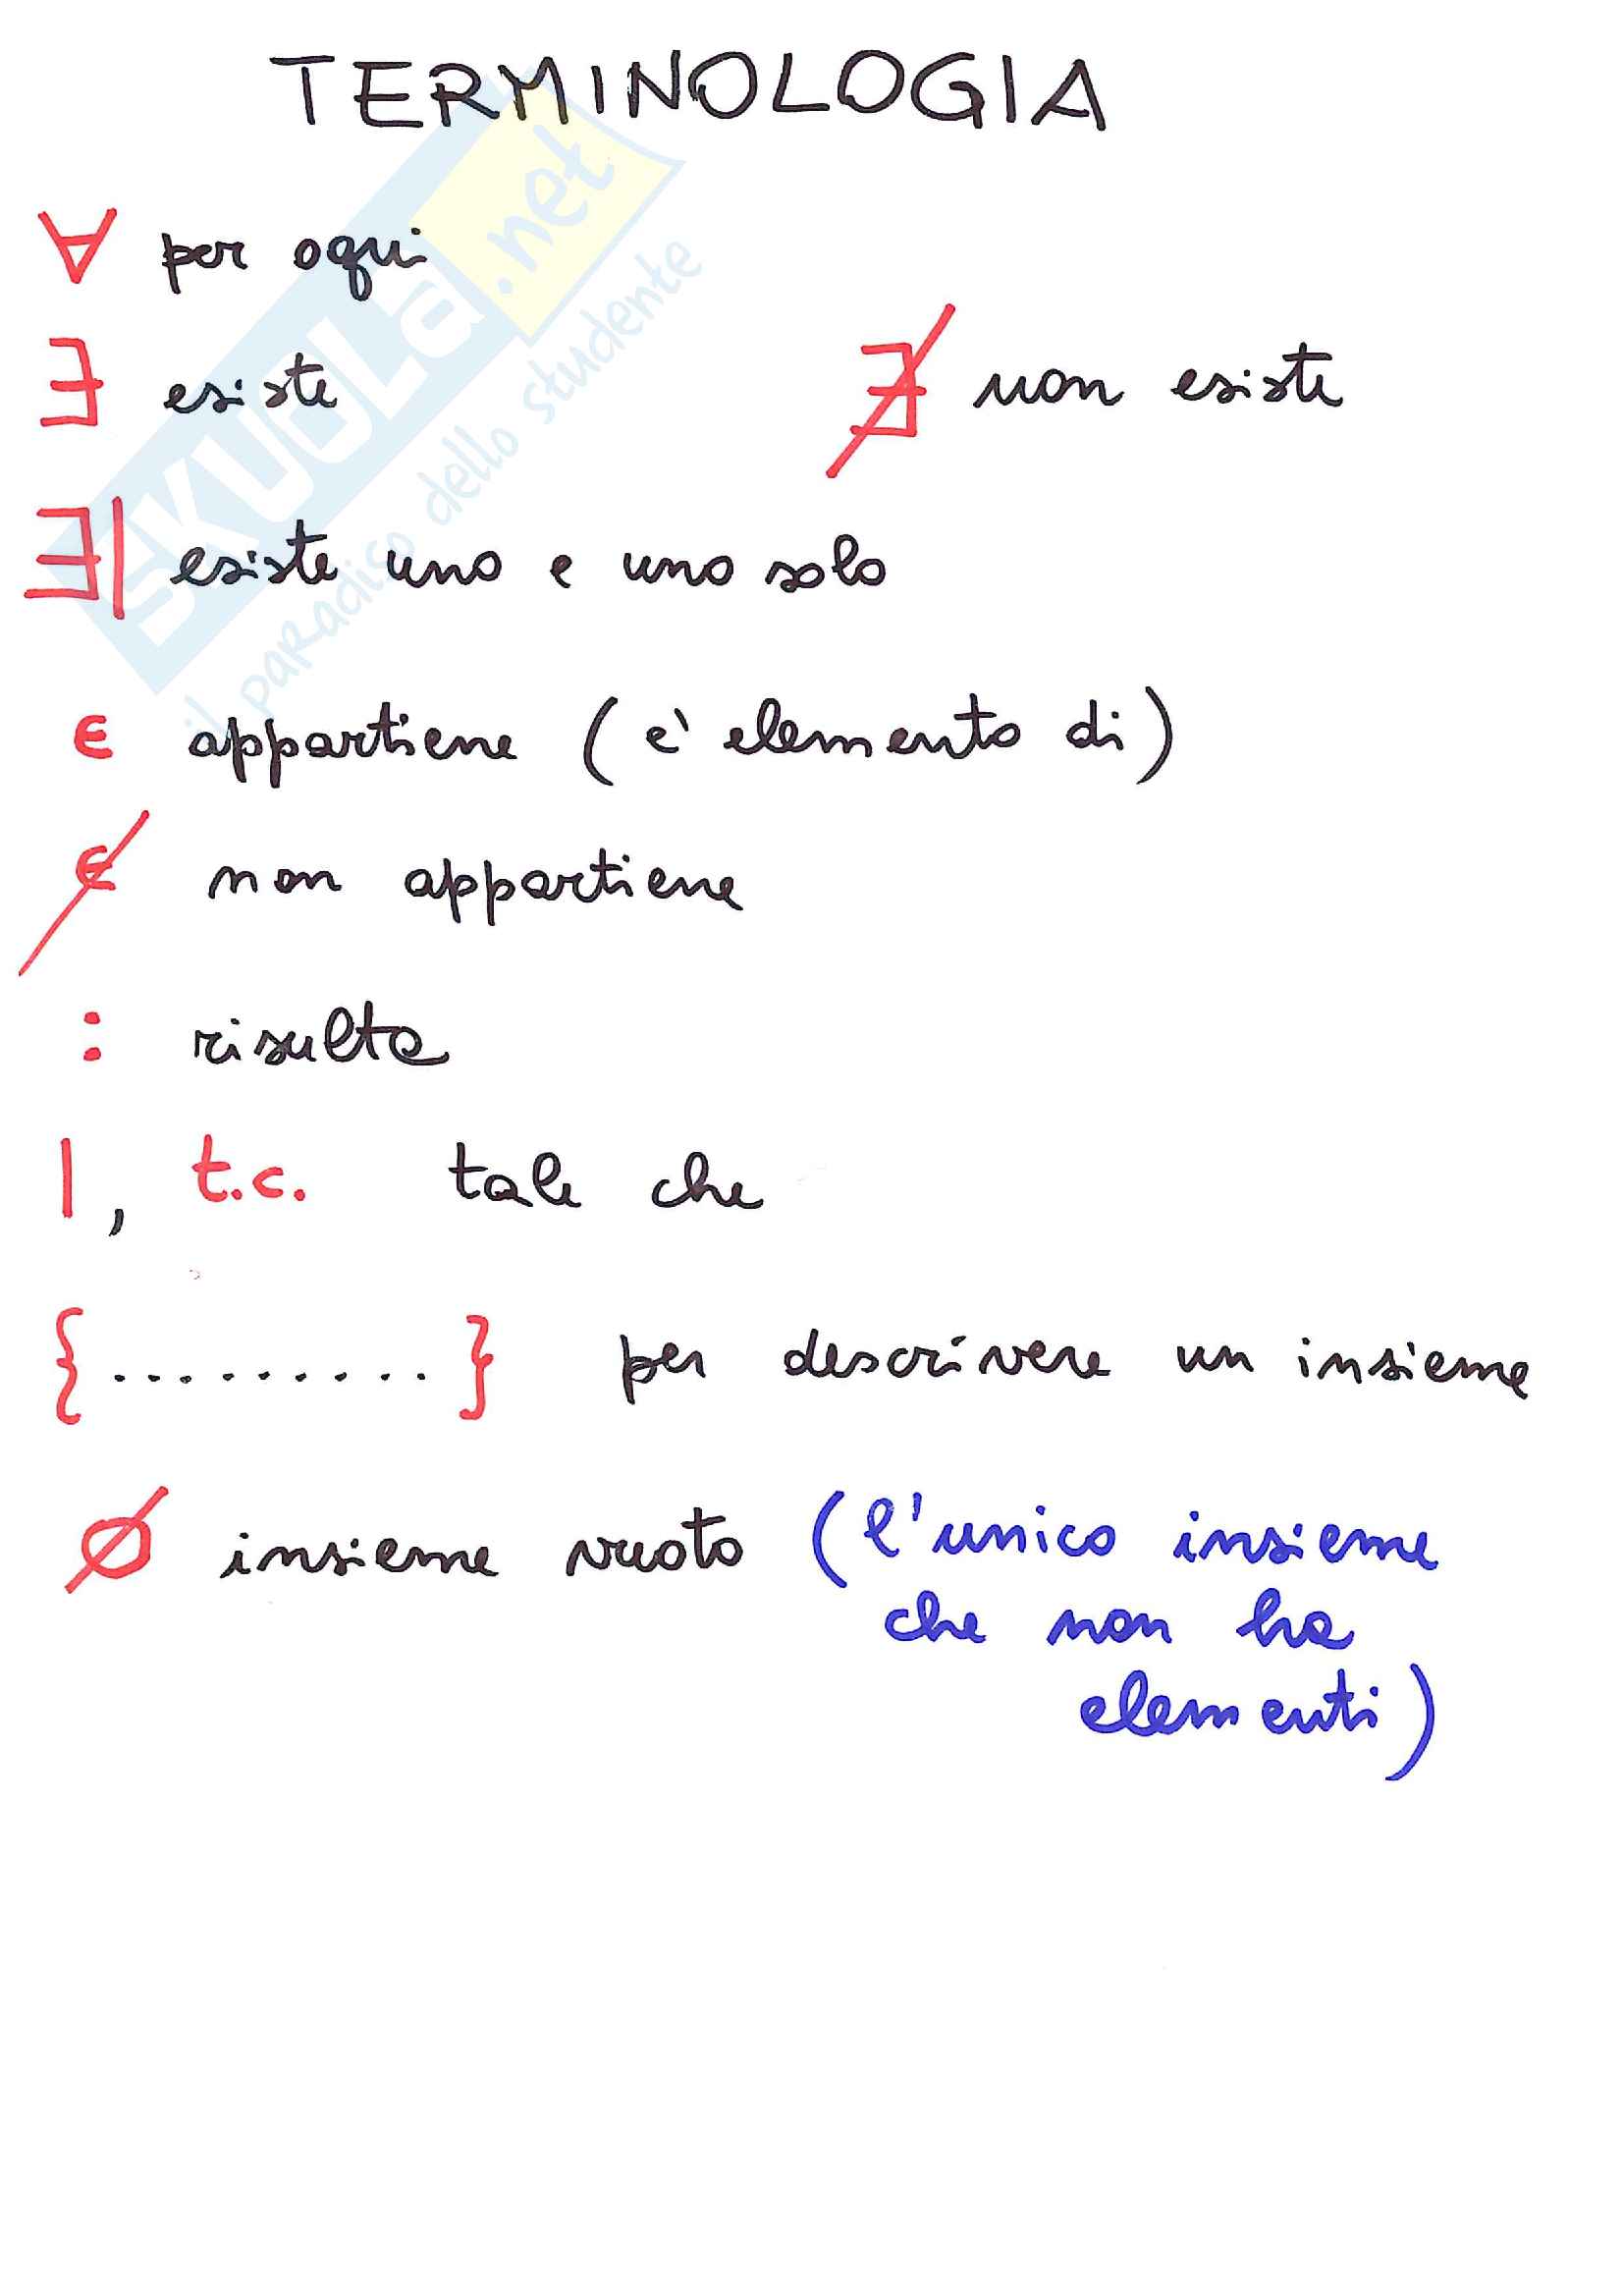 TERMINOLOGIA
∀ per ogni
∃ esiste
∄ non esiste
∃| esiste uno e uno solo
∈ appartiene (e' elemento di)
∉ non appartiene
: risulta
|, t.c. tale che
{..........} per descrivere un insieme
∅ insieme vuoto (l'unico insieme
che non ha
elementi)
SKUOLA.net
il paradiso dello studente